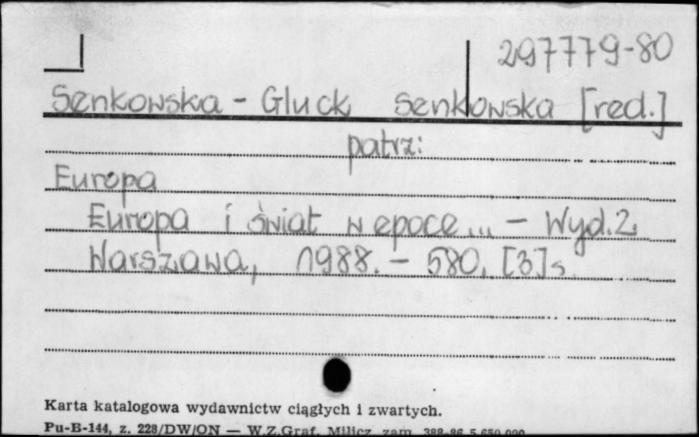 297779-80
Senkowska-Gluck, Senkowska [red.]
patrz:
Europa
Europa i świat w epoce... - Wyd.2
Warszawa, 1988. - 580, [3] s.
Karta katalogowa wydawnictw ciągłych i zwartych.
Pu-B-144, z. 228/DW/ON — W.Z.Graf. Milicz zam. 388-86 5.650.000